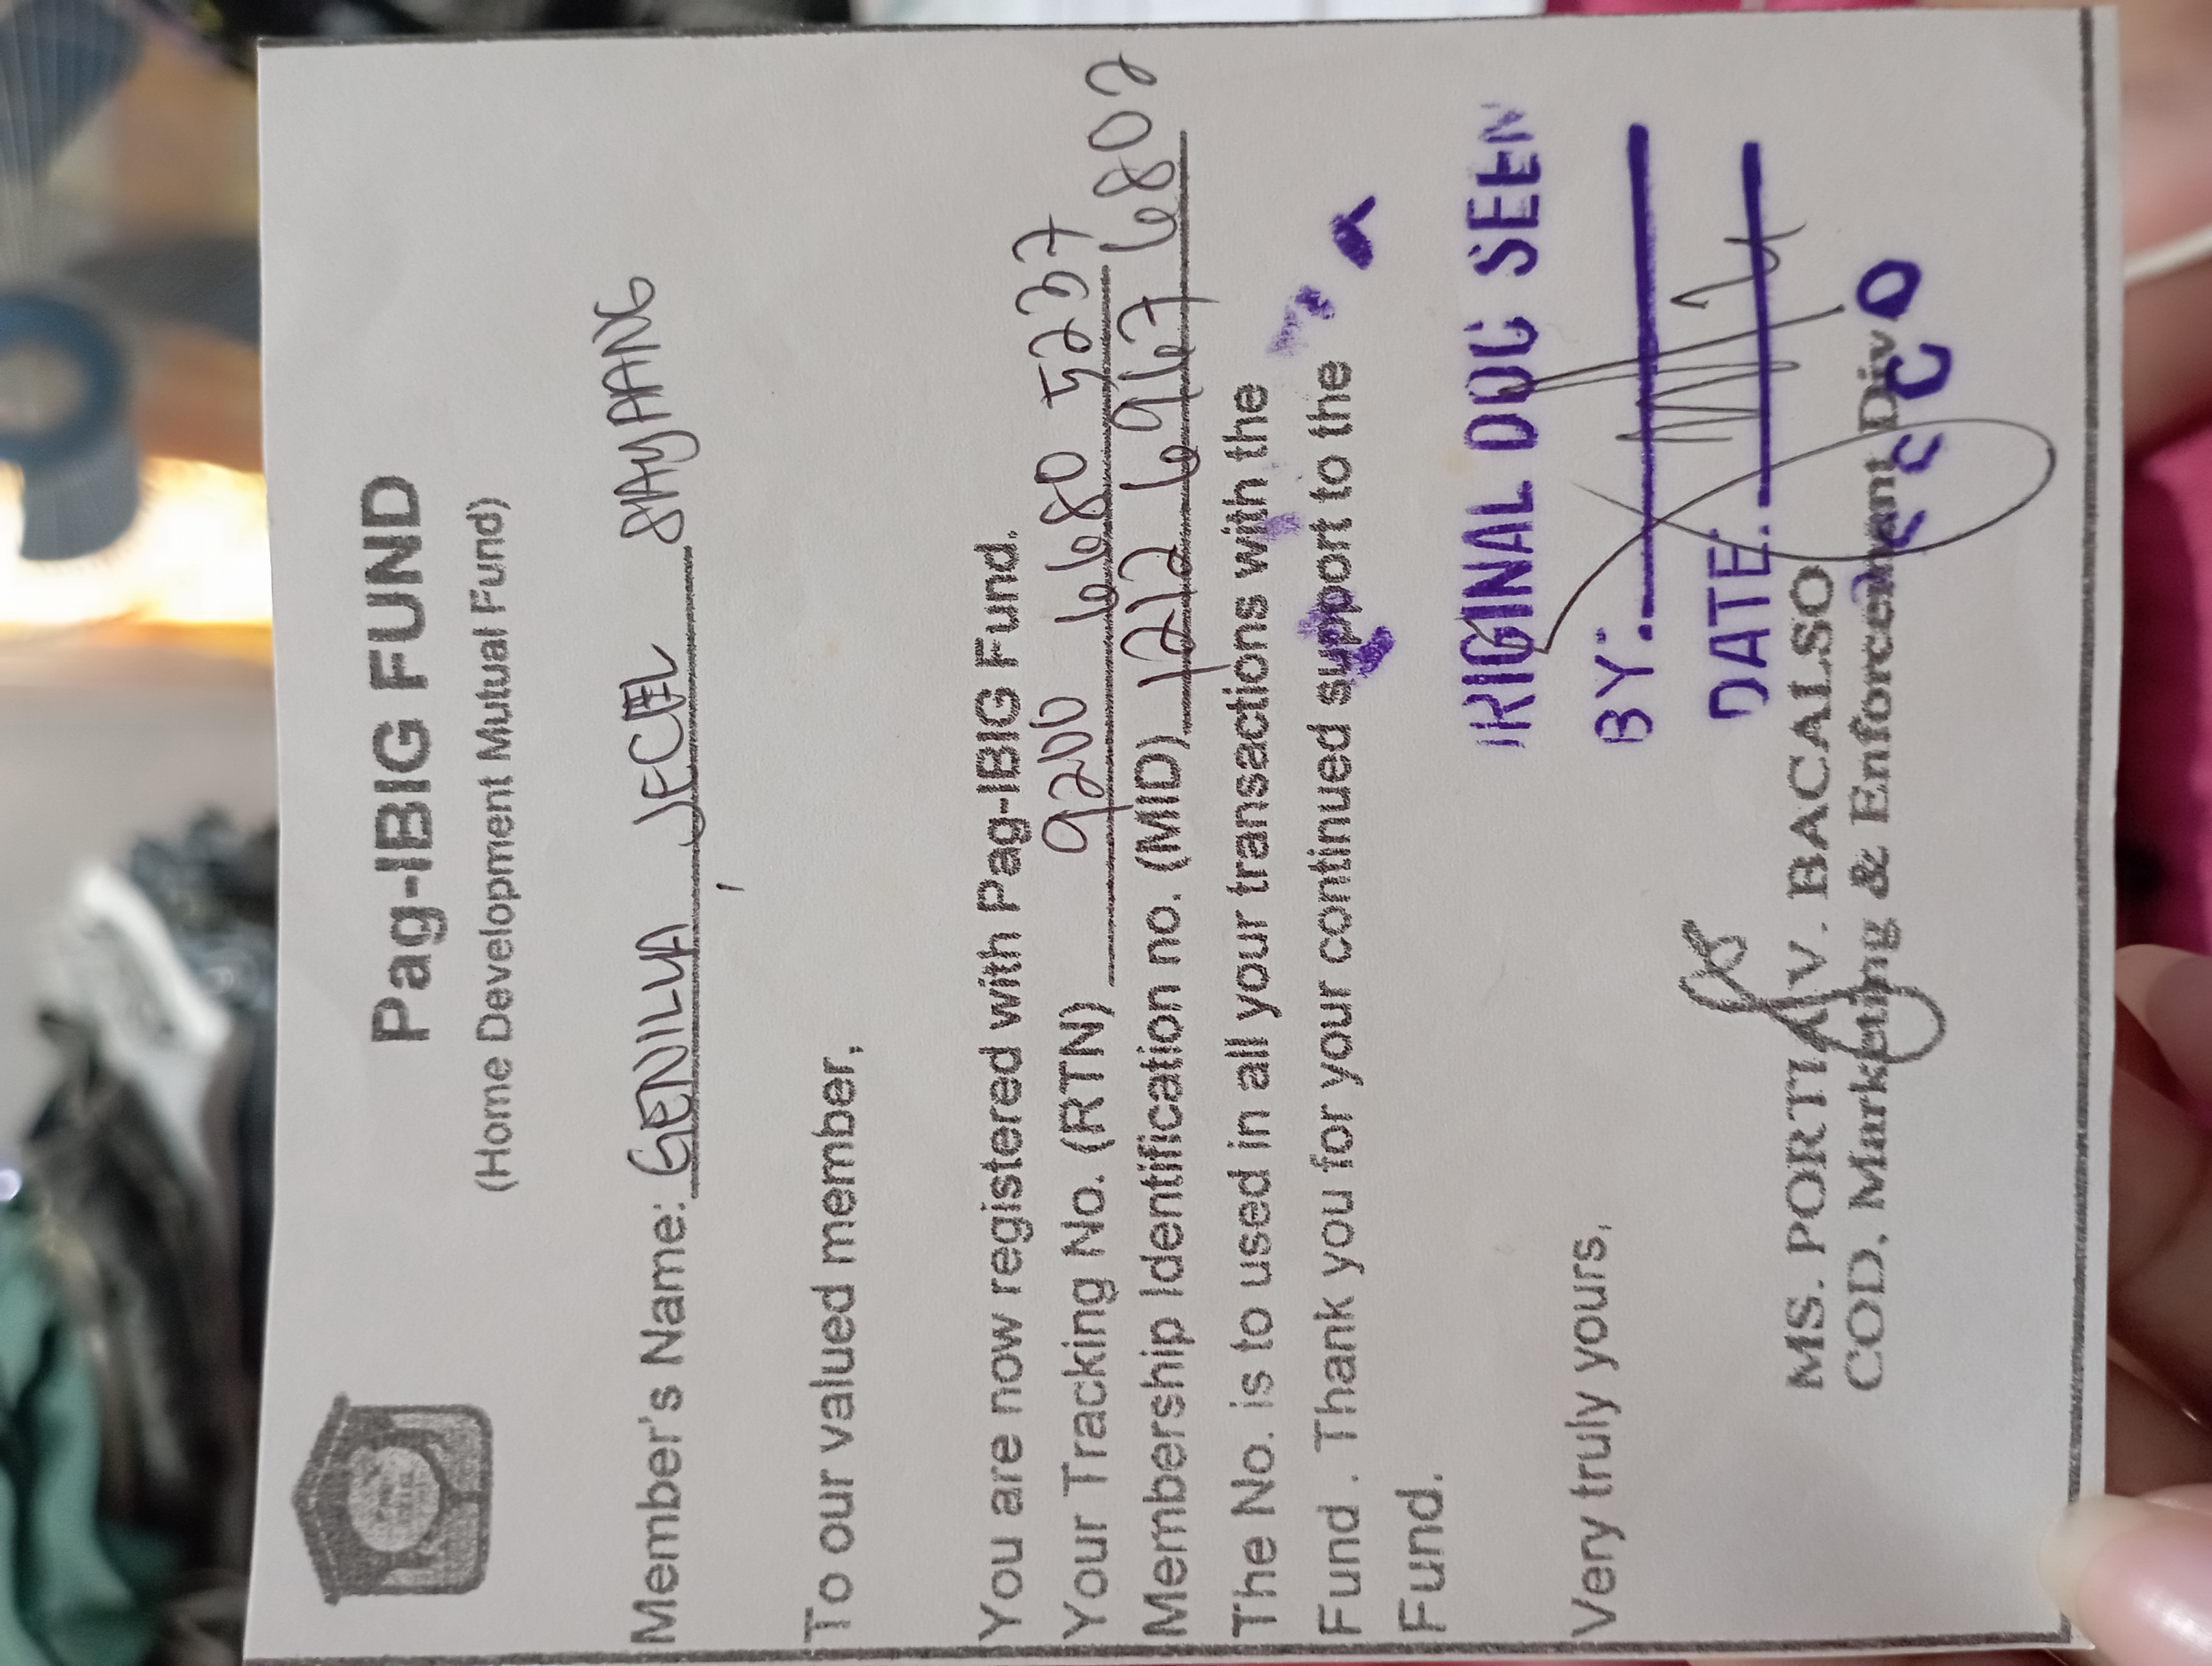 Pag-IBIG FUND
(Home Development Mutual Fund)
Member's Name: GENILLA JECEL SAYAANG
To our valued member,
You are now registered with Pag-IBIG Fund.
Your Tracking No. (RTN) 9200 6680 5237
Membership Identification no. (MID) 1212 6167 6802
The No. is to used in all your transactions with the
Fund . Thank you for your continued support to the
Fund.
Very truly yours,
RIGINAL DOC SEEN
BY:
DATE:
MS. PORTIA V. BACALSO
COD, Marketing & Enforcement Div